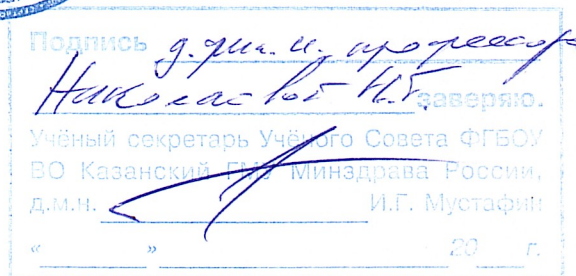 Подпись д. фил. н. профессора
Николаевой Н.Г. заверяю.
Учёный секретарь Учёного Совета ФГБОУ
ВО Казанский ГМУ Минздрава России,
д.м.н. И.Г. Мустафин
« » 20 г.